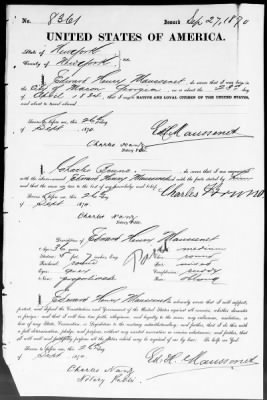 No. 8361 Issued Sep 27, 1870
UNITED STATES OF AMERICA.
State of New York
County of New York } ss.
I, Edward Henry Maussenet, do swear that I was born in the
City of Macon Georgia, on or about the 23d day of
that I am a NATIVE AND LOYAL CITIZEN OF THE UNITED STATES,
and about to travel abroad.
Sworn to before me, this 26th day
of Sept 1870 Ed. H. Maussenet
Charles Nanz
Notary Public.
I, Charles Browne, do swear that I am acquainted
with the above-named Edward Henry Maussenet and with the facts stated by him
Sworn to before me, this 26th
of Sept 1870 Charles Browne
Charles Nanz
Notary Public.
Description of Edward Henry Maussenet
Age: 36 years
Stature: 5 feet 7 inches, Eng.
medium
Eyes: gray
I, Edward Henry Maussenet, do solemnly swear that I will support,
protect, and defend the Constitution and Government of the United States against all enemies, whether domestic
or foreign; and that I will bear true faith, allegiance, and loyalty to the same, any ordinance, resolution, or
law of any State, Convention, or Legislature to the contrary notwithstanding; and further, that I do this with
a full determination, pledge, and purpose, without any mental reservation or evasion whatsoever; and, further,
that I will well and faithfully perform all the duties which may be required of me by law. So help me God.
Sworn to before me, this 26th day
of Sept 1870 Ed. H. Maussenet
Charles Nanz
Notary Public